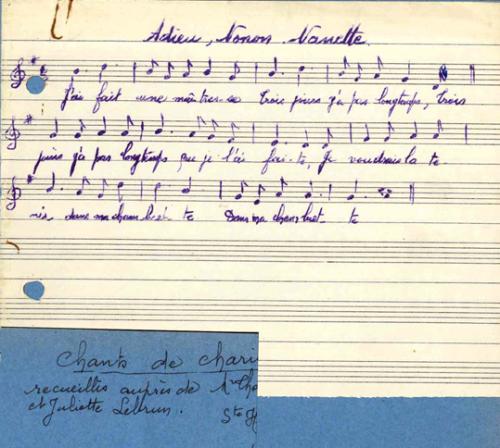 Adieu, Nonon Nanette.
J'ai fait une maîtres-se Trois jours y'a pas longtemps, Trois
jours y'a pas longtemps que je l'ai fai-te, Je voudrais la te
nir, dans ma cham te Dans ma chambret te
Chants de
recueillis auprès de
et Juliette Lebrun.